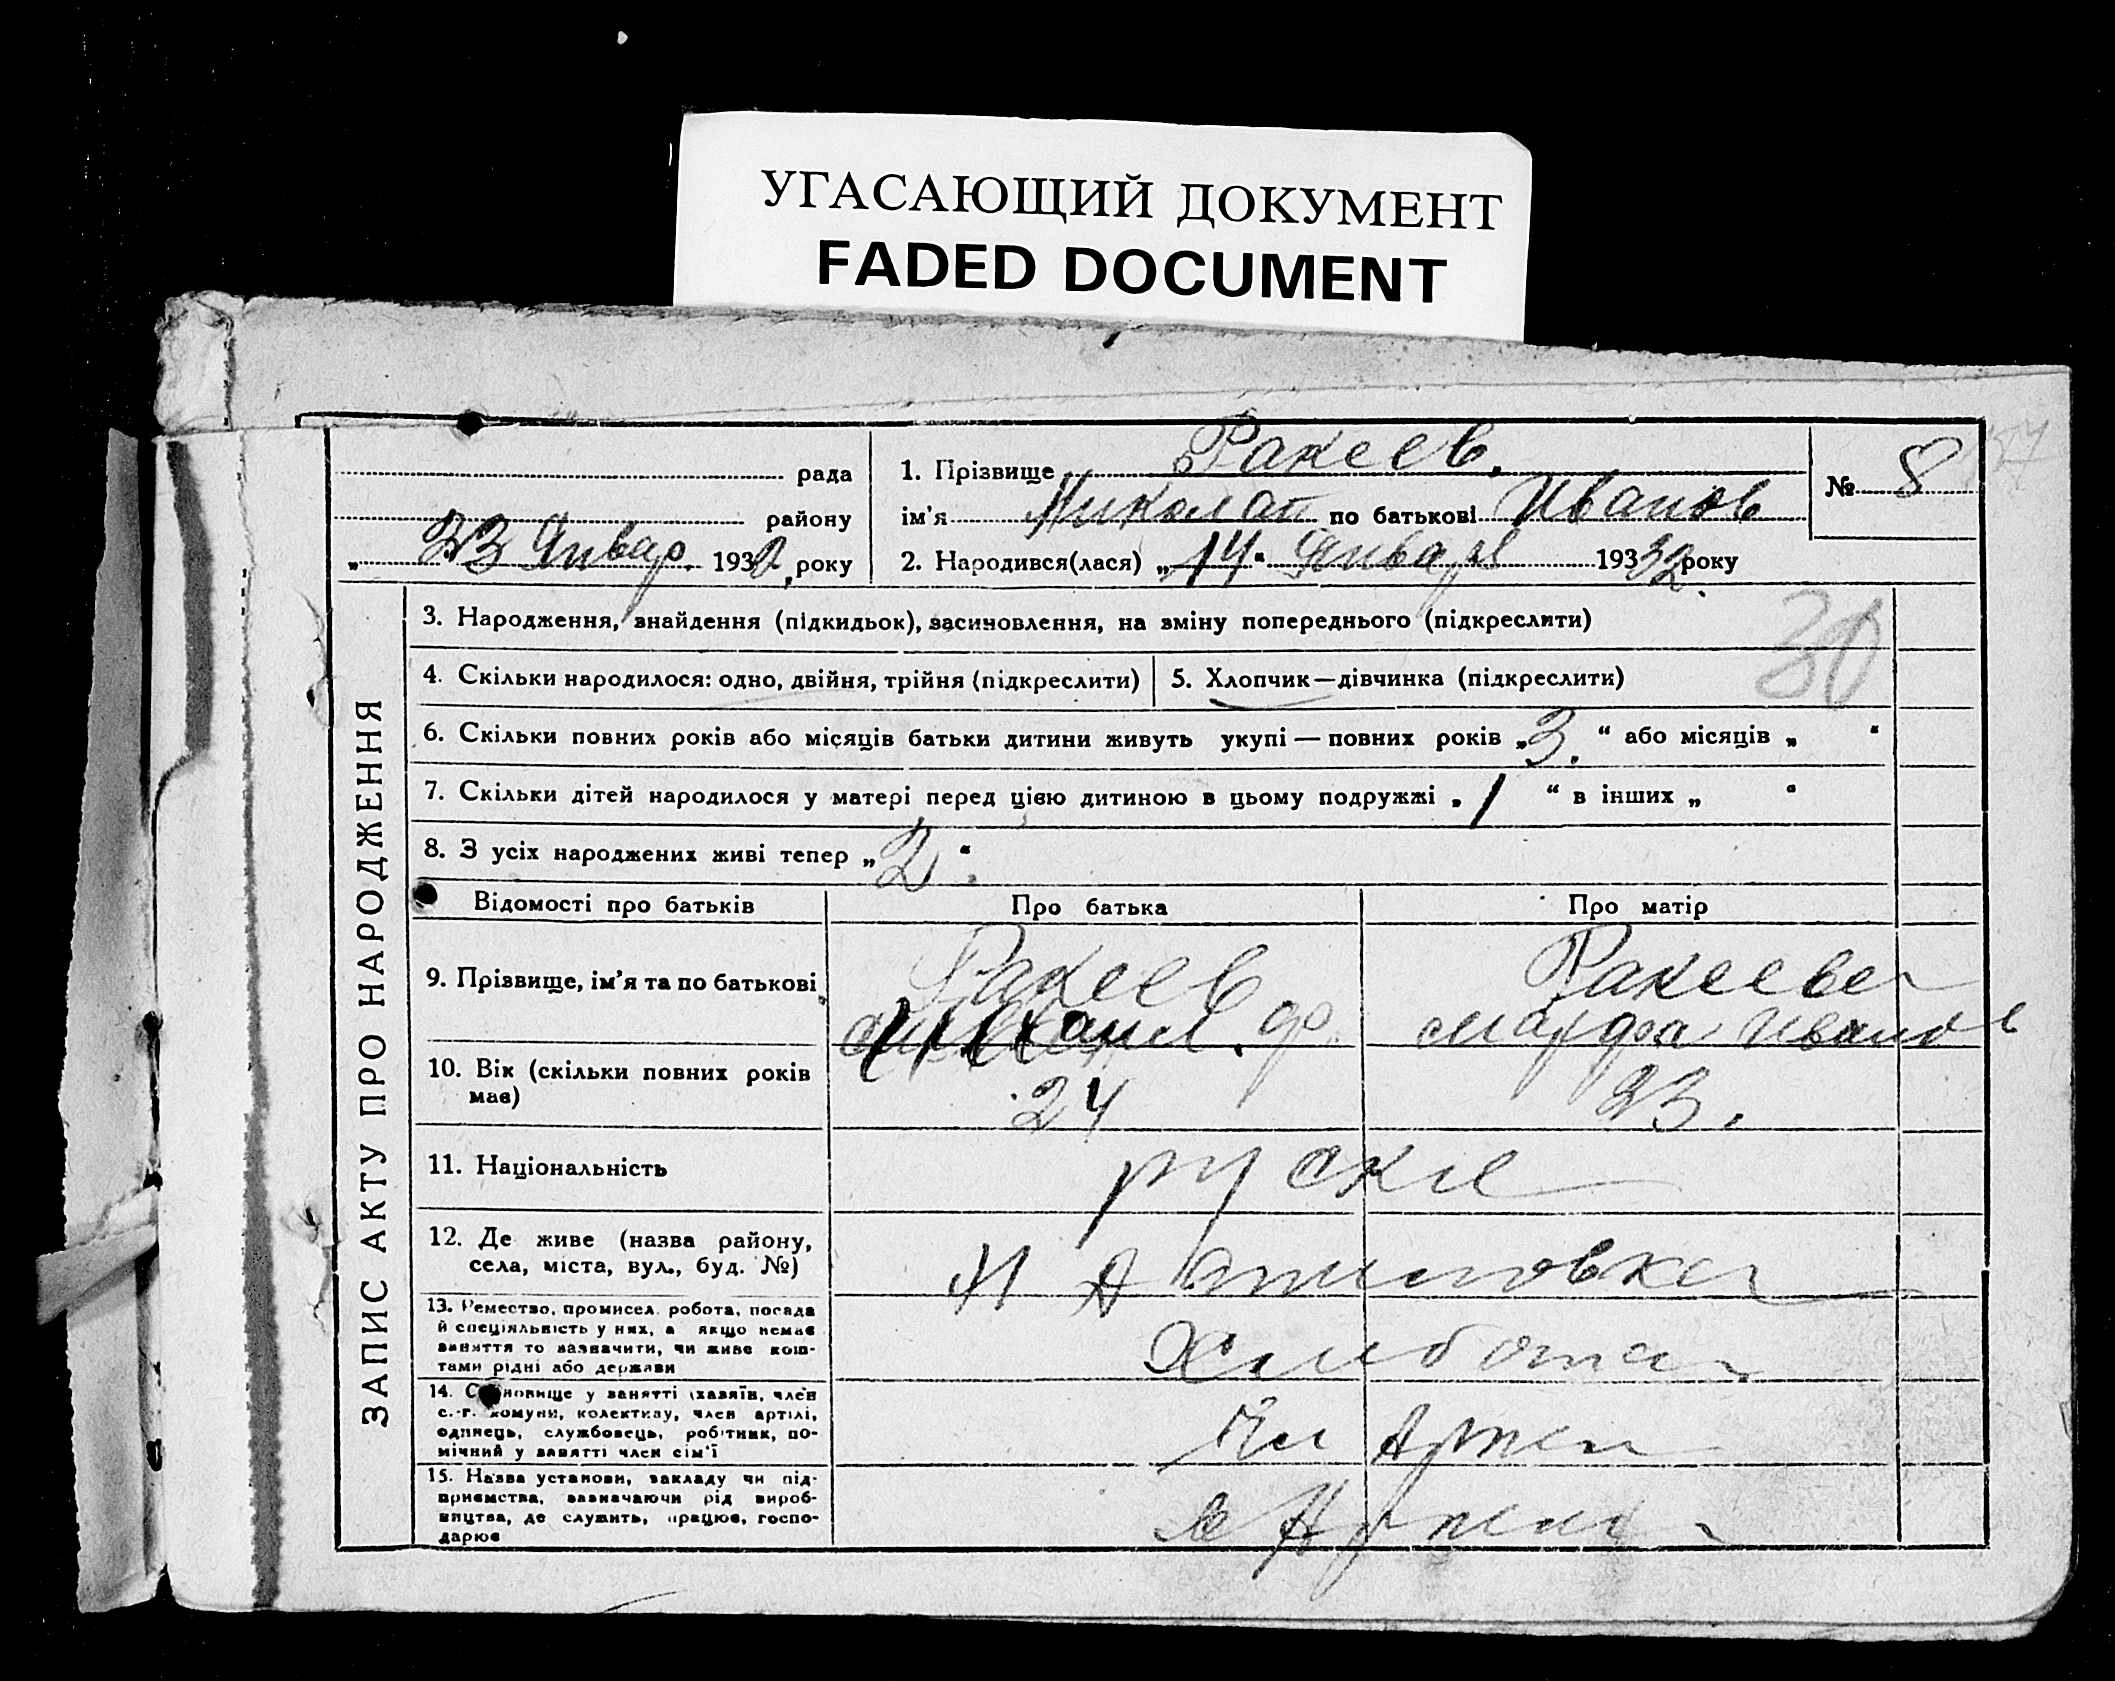 УГАСАЮЩИЙ ДОКУМЕНТ
FADED DOCUMENT
рада
району
„ 23 Январ. 1932 року
1. Прізвище Ракеев.
ім'я Николай по батькові Иванов
2. Народився(лася) „14“ Января 193 32 року
№ 8
ЗАПИС АКТУ ПРО НАРОДЖЕННЯ
3. Народження, знайдення (підкидьок), засиновлення, на зміну попереднього (підкреслити)
30
4. Скільки народилося: одно, двійня, трійня (підкреслити)
5. Хлопчик—дівчинка (підкреслити)
6. Скільки повних років або місяців батьки дитини живуть укупі — повних років „3.“ або місяців „ “
7. Скільки дітей народилося у матері перед цією дитиною в цьому подружжі „1 “ в інших „ “
8. З усіх народжених живі тепер „2.“
Відомості про батьків
Про батька
Про матір
9. Прізвище, ім'я та по батькові
Ракеев
Ракеева
Марфа Иванов
10. Вік (скільки повних років
має)
24
23.
11. Національність
руские
12. Де живе (назва району,
села, міста, вул., буд. №)
Н
13. Ремество, промисел, робота, посада
й спеціяльність у них, а якщо немає
заняття то зазначити, чи живе кош-
тами рідні або держави
14. Становище у занятті (хазяїн, член
с.-г. комуни, колективу, член артілі,
одинець, службовець, робітник, по-
мічний у занятті член сім'ї
Чл Артел
15. Назва установи, закладу чи під-
приємства, зазначаючи рід вироб-
ництва, де служить, працює, госпо-
дарює